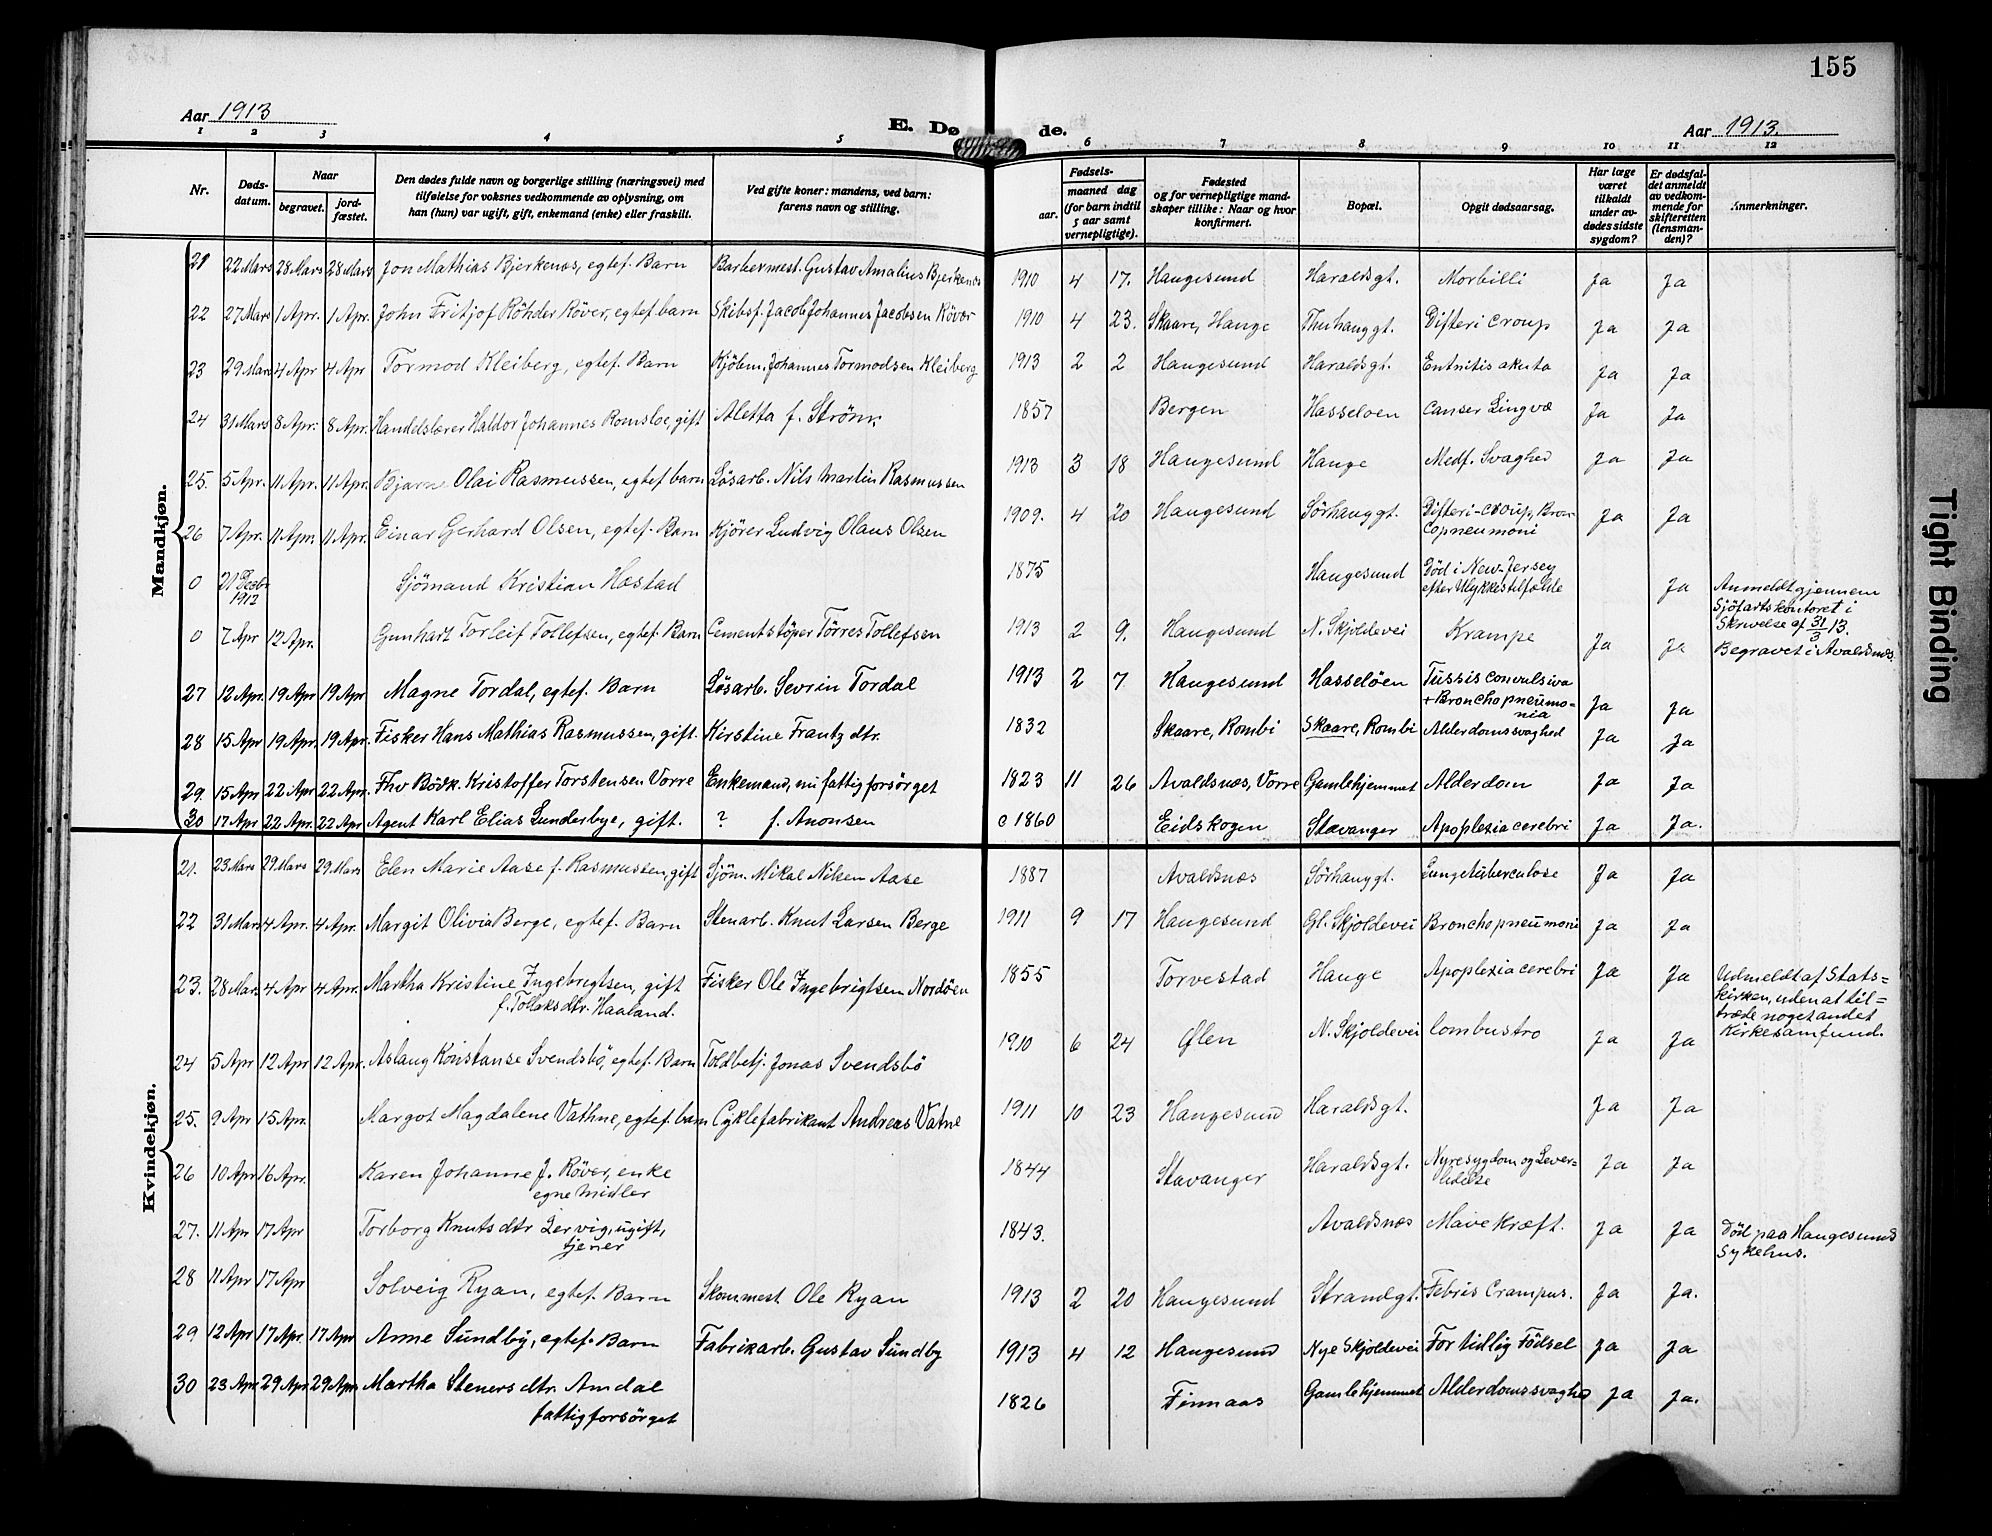 155
Aar 1913
E. Dø de.
Aar 1913.
1 2 3 4 5 6 7 8 9 10 11 12
Nr. Døds-datum. Naar begravet. jord-fæstet. Den dødes fulde navn og borgerlige stilling (næringsvei) med tilføielse for voksnes vedkommende av oplysning, om han (hun) var ugift, gift, enkemand (enke) eller fraskilt. Ved gifte koner: mandens, ved barn: farens navn og stilling. Fødsels- aar. maaned dag (for barn indtil 5 aar samt vernepligtige). Fødested og for vernepligtige mand-skaper tillike: Naar og hvor konfirmert. Bopæl. Opgit dødsaarsag. Har læge været tilkaldt under av-dødes sidste sygdom? Er dødsfal-det anmeldt av vedkom-mende for skifteretten (lensman-den)? Anmerkninger.
Mandkjøn.
21 22 Mars 28 Mars 28 Mars Jon Mathias Bjerkenæs, egtef. Barn Barbermest. Gustav Amalius Bjerkenæs 1910 4 17. Haugesund Haraldsgt. Morbilli Ja Ja
22 27 Mars 1 Apr. 1 Apr. John Fritjof Röhder Röver, egtef barn Skibsf. Jacob Johannes Jacobsen Rövær 1910 4 23. Skaare, Hauge Thuhauggt. Difteri croup Ja Ja
23 29 Mars 4 Apr 4 Apr Tormod Kleiberg, egtef. Barn Kjöbm. Johannes Tormodsen Kleiberg 1913 2 2 Haugesund Haraldsgt. Entritis akuta Ja Ja
24 31 Mars 8 Apr. 8 Apr. Handelslærer Haldor Johannes Romsloe, gift Aletta f. Ström. 1857 Bergen Hasseloen Canser Lingvæ Ja Ja
25. 5 Apr. 11 Apr. 11 Apr. Bjarne Olai Rasmussen, egtef barn Lösarb. Nils Martin Rasmussen 1913 3 18 Haugesund Hauge Medf. Svaghed Ja Ja
26 7 Apr. 11 Apr. 11 Apr. Einar Gerhard Olsen, egtef. Barn Kjörer Ludvig Olaus Olsen 1909. 4 20 Haugesund Sörhauggt. Difteri-croup, Bron-copneumoni Ja Ja
0 21 Decbr 1912 Sjömand Kristian Hæstad 1875 Haugesund Död i New-Jersey efter Ulykkestilfælde Ja Anmeldt gjennem Sjöfartskontoret i Skrivelse af 31/3 13.
0 7 Apr 12 Apr. Gunhart Torleif Tollefsen, egtef. Barn Cementstöper Törres Tollefsen 1913 2 9. Haugesund N. Skjoldevei Krampe Ja Ja Begravet i Avaldsnes
27 12 Apr. 19 Apr 19 Apr Magne Tordal, egtef. Barn Lösarb. Sevrin Tordal 1913 2 7 Haugesund Hasselöen Tussis convulsiva + Bronchopneumo-nia Ja Ja
28 15 Apr 19 Apr. 19 Apr. Fisker Hans Mathias Rasmussen, gift. Kirstine Frantz dtr. 1832 Skaare, Rombi Skaare, Rombi Alderdomssvaghed Ja Ja
29. 15 Apr 22 Apr 22 Apr. Fhv Bödk. Kristoffer Torstensen Vorre Enkemand, nu fattigforsörget 1823 11 26 Avaldsnæs, Vorre Gamlehjemmet Alderdom Ja Ja
30 17 Apr 22 Apr. 22 Apr Agent Karl Elias Lunderbye, gift. ? f. Anonsen c 1860 Eidskogen Stavanger Apoplexia cerebri Ja Ja.
Kvindekjøn.
21. 23 Mars 29 Mars 29 Mars Elen Marie Aase f. Rasmussen, gift Sjöm. Mikal Nilsen Aase 1887 Avaldsnæs Sörhauggt. Lungetuberculose Ja Ja
22 31 Mars 4 Apr. 4 Apr. Margit Olivia Berge, egtef. Barn Stenarb. Knut Larsen Berge 1911 9 17 Haugesund Gl. Skjoldevei Bronchopneumoni Ja Ja
23. 28 Mars 4 Apr 4 Apr. Martha Kristine Ingebrigtsen, gift f. Tollaks dtr. Haaland. Fisker Ole Ingebrigtsen Nordöen 1855 Torvestad Hauge Apoplexia cerebri Ja Ja Udmeldt af Stats-kirken, uden at til-træde noget andet Kirkesamfund.
24 5 Apr 12 Apr 12 Apr. Aslaug Konstanse Svendsbö, egtef. Barn Toldbetj. Jonas Svendsbö 1910 6 24 Ølen N. Skjoldevei Combustro Ja Ja
25. 9 Apr 15 Apr. Margot Magdalene Vathne, egtef. barn Cyklefabrikant Andreas Vatne 1911 10 23 Haugesund Haraldsgt. Ja Ja
26 10 Apr 16 Apr. Karen Johanne J. Röver, enke egne Midler 1844 Stavanger Haraldsgt. Nyresygdom og Lever-lidelse Ja Ja
27. 11 Apr 17 Apr Torborg Knuts dtr Lervig, ugift, tjener 1843. Avaldsnæs Mavekræft. Ja Ja Död paa Haugesunds Sykehus.
28 11 Apr 17 Apr Solveig Ryan, egtef. Barn Skommest Ole Ryan 1913 2 20 Haugesund Strandgt. Febris Crampus. Ja Ja.
29 12 Apr 17 Apr. 17 Apr Anne Sundby, egtef. Barn Fabrikarb. Gustav Sundby 1913 4 12 Haugesund Nye Skjoldevei For tidlig Födsel Ja Ja
30 23 Apr 29 Apr 29 Apr Martha Steners dtr. Amdal fattigforsörget 1826 Finnaas Gamlehjemmet Alderdomssvaghed Ja Ja.
Tight Binding